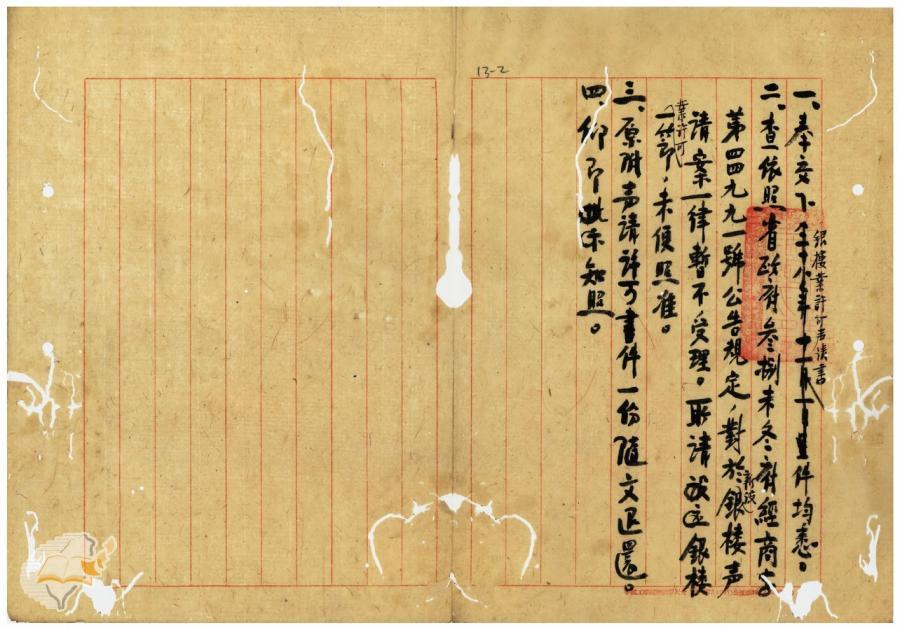 13-2
銀樓業許可声請書
一、奉交下件均悉。
二、查依照省政府叁捌未冬府經商字
第四四九九一號公告規定，對於新設銀樓声
請案一律暫不受理。所請設立銀樓
業許可一節，未便照准。
三、原附声請許可書件一份隨文退還。
四、仰即知照。